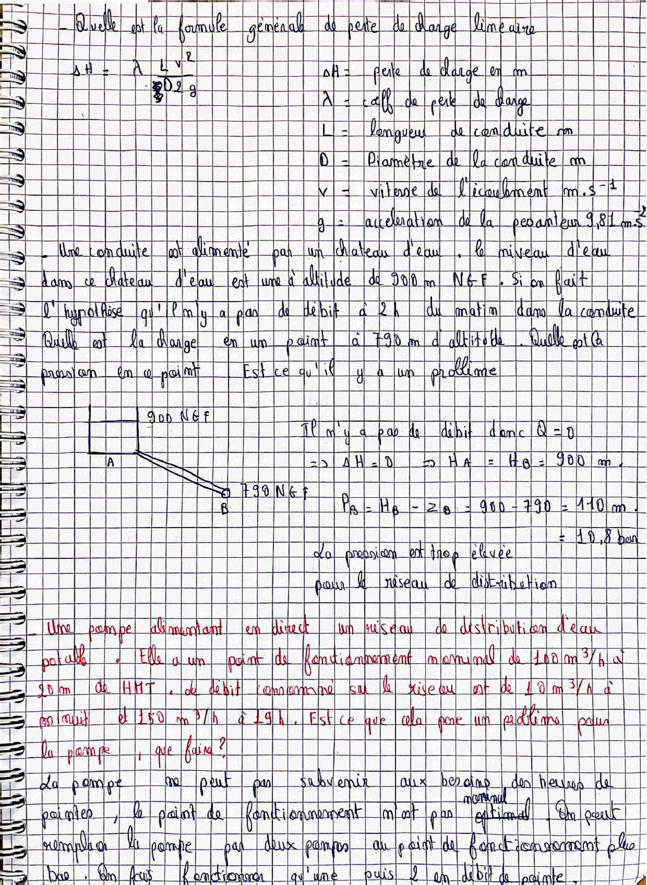 - Quelle est la formule générale de perte de charge linéaire
ΔH = λ L v² / D2g
ΔH = perte de charge en m
λ = coeff de perte de charge
L = longueur de conduite m
D = Diamètre de la conduite m
v = vitesse de l'écoulement m.s⁻¹
g = acceleration de la pesanteur 9,81 m.s⁻²
- Une conduite est alimenté par un chateau d'eau. le niveau d'eau
dans ce chateau d'eau est une à altitude de 900 m NGF. Si on fait
l'hypothèse qu'il n'y a pas de débit à 2h du matin dans la conduite
Quelle est la charge en un point à 790 m d'altitude. Quelle est la
pression en ce point Est ce qu'il y a un problème
900 NGF
A
790 NGF
B
Il n'y a pas de débit donc Q = 0
=> ΔH = 0 => HA = HB = 900 m.
PB = HB - ZB = 900 - 790 = 110 m.
= 10,8 bar
La pression est trop élevée
pour le réseau de distribution
- Une pompe alimentant en direct un réseau de distribution d'eau
potable. Elle a un point de fonctionnement nominal de 100 m³/h à
20 m de HMT. Le débit consommé sur le réseau est de 10 m³/h à
minuit et 150 m³/h à 19h. Est ce que cela pose un problème pour
la pompe, que faire?
La pompe ne peut pas subvenir aux besoins des heures de
pointes, le point de fonctionnement n'est pas optimal nominal. On peut
remplacer la pompe par deux pompes au point de fonctionnement plus
bas. On fais fonctionner qu'une puis 2 en débit de pointe.